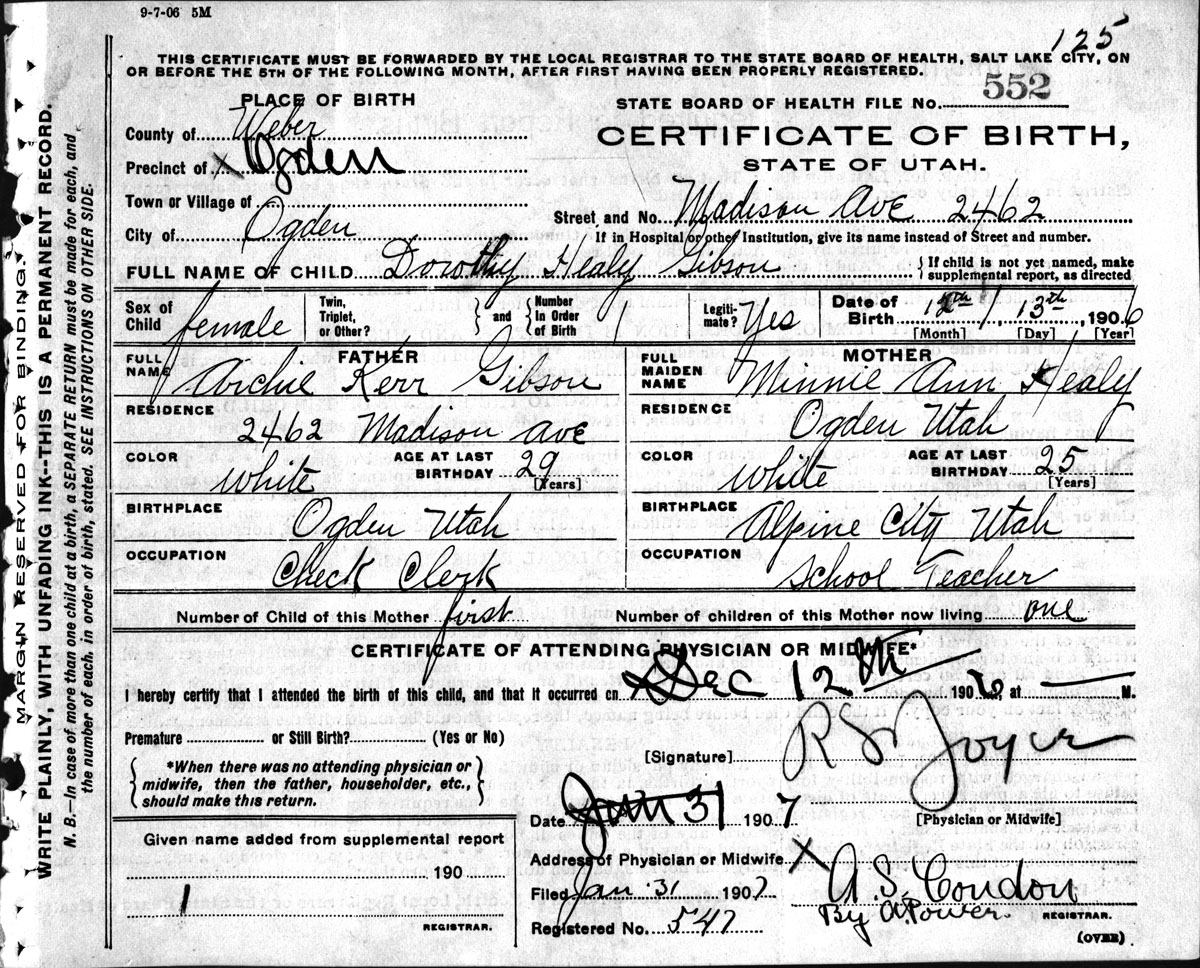 9-7-06 5M
125
THIS CERTIFICATE MUST BE FORWARDED BY THE LOCAL REGISTRAR TO THE STATE BOARD OF HEALTH, SALT LAKE CITY, ON
OR BEFORE THE 5TH OF THE FOLLOWING MONTH, AFTER FIRST HAVING BEEN PROPERLY REGISTERED.
PLACE OF BIRTH
STATE BOARD OF HEALTH FILE No. 552
County of Weber
CERTIFICATE OF BIRTH,
Precinct of X Ogden
STATE OF UTAH.
Town or Village of
Street and No. Madison Ave 2462
City of Ogden
If in Hospital or other Institution, give its name instead of Street and number.
FULL NAME OF CHILD Dorothy Healy Gibson
{ If child is not yet named, make
supplemental report, as directed
Sex of Child female
Twin, Triplet, or Other?
{ and }
Number In Order of Birth
Legiti-mate? Yes
Date of Birth 12th / 13th, 1906
[Month] [Day] [Year]
FATHER
FULL NAME Archie Kerr Gibson
MOTHER
FULL MAIDEN NAME Minnie Ann Healy
RESIDENCE
2462 Madison Ave
RESIDENCE
Ogden Utah
COLOR white
AGE AT LAST BIRTHDAY 29 [Years]
COLOR white
AGE AT LAST BIRTHDAY 25 [Years]
BIRTHPLACE
Ogden Utah
BIRTHPLACE
Alpine City Utah
OCCUPATION
Check Clerk
OCCUPATION
School Teacher
Number of Child of this Mother first
Number of children of this Mother now living one
CERTIFICATE OF ATTENDING PHYSICIAN OR MIDWIFE*
I hereby certify that I attended the birth of this child, and that it occurred on Dec 12th 1906, at M.
Premature or Still Birth? (Yes or No)
[Signature] R S Joyce
{ *When there was no attending physician or
midwife, then the father, householder, etc.,
should make this return. }
Date Jan 31 1907
[Physician or Midwife]
Given name added from supplemental report
190
REGISTRAR.
Address of Physician or Midwife X
Filed Jan 31 1907
A. S. Condon
By A. Power.
REGISTRAR.
Registered No. 547
(OVER)
MARGIN RESERVED FOR BINDING.
WRITE PLAINLY, WITH UNFADING INK--THIS IS A PERMANENT RECORD.
N. B.—In case of more than one child at a birth, a SEPARATE RETURN must be made for each, and
the number of each, in order of birth, stated. SEE INSTRUCTIONS ON OTHER SIDE.